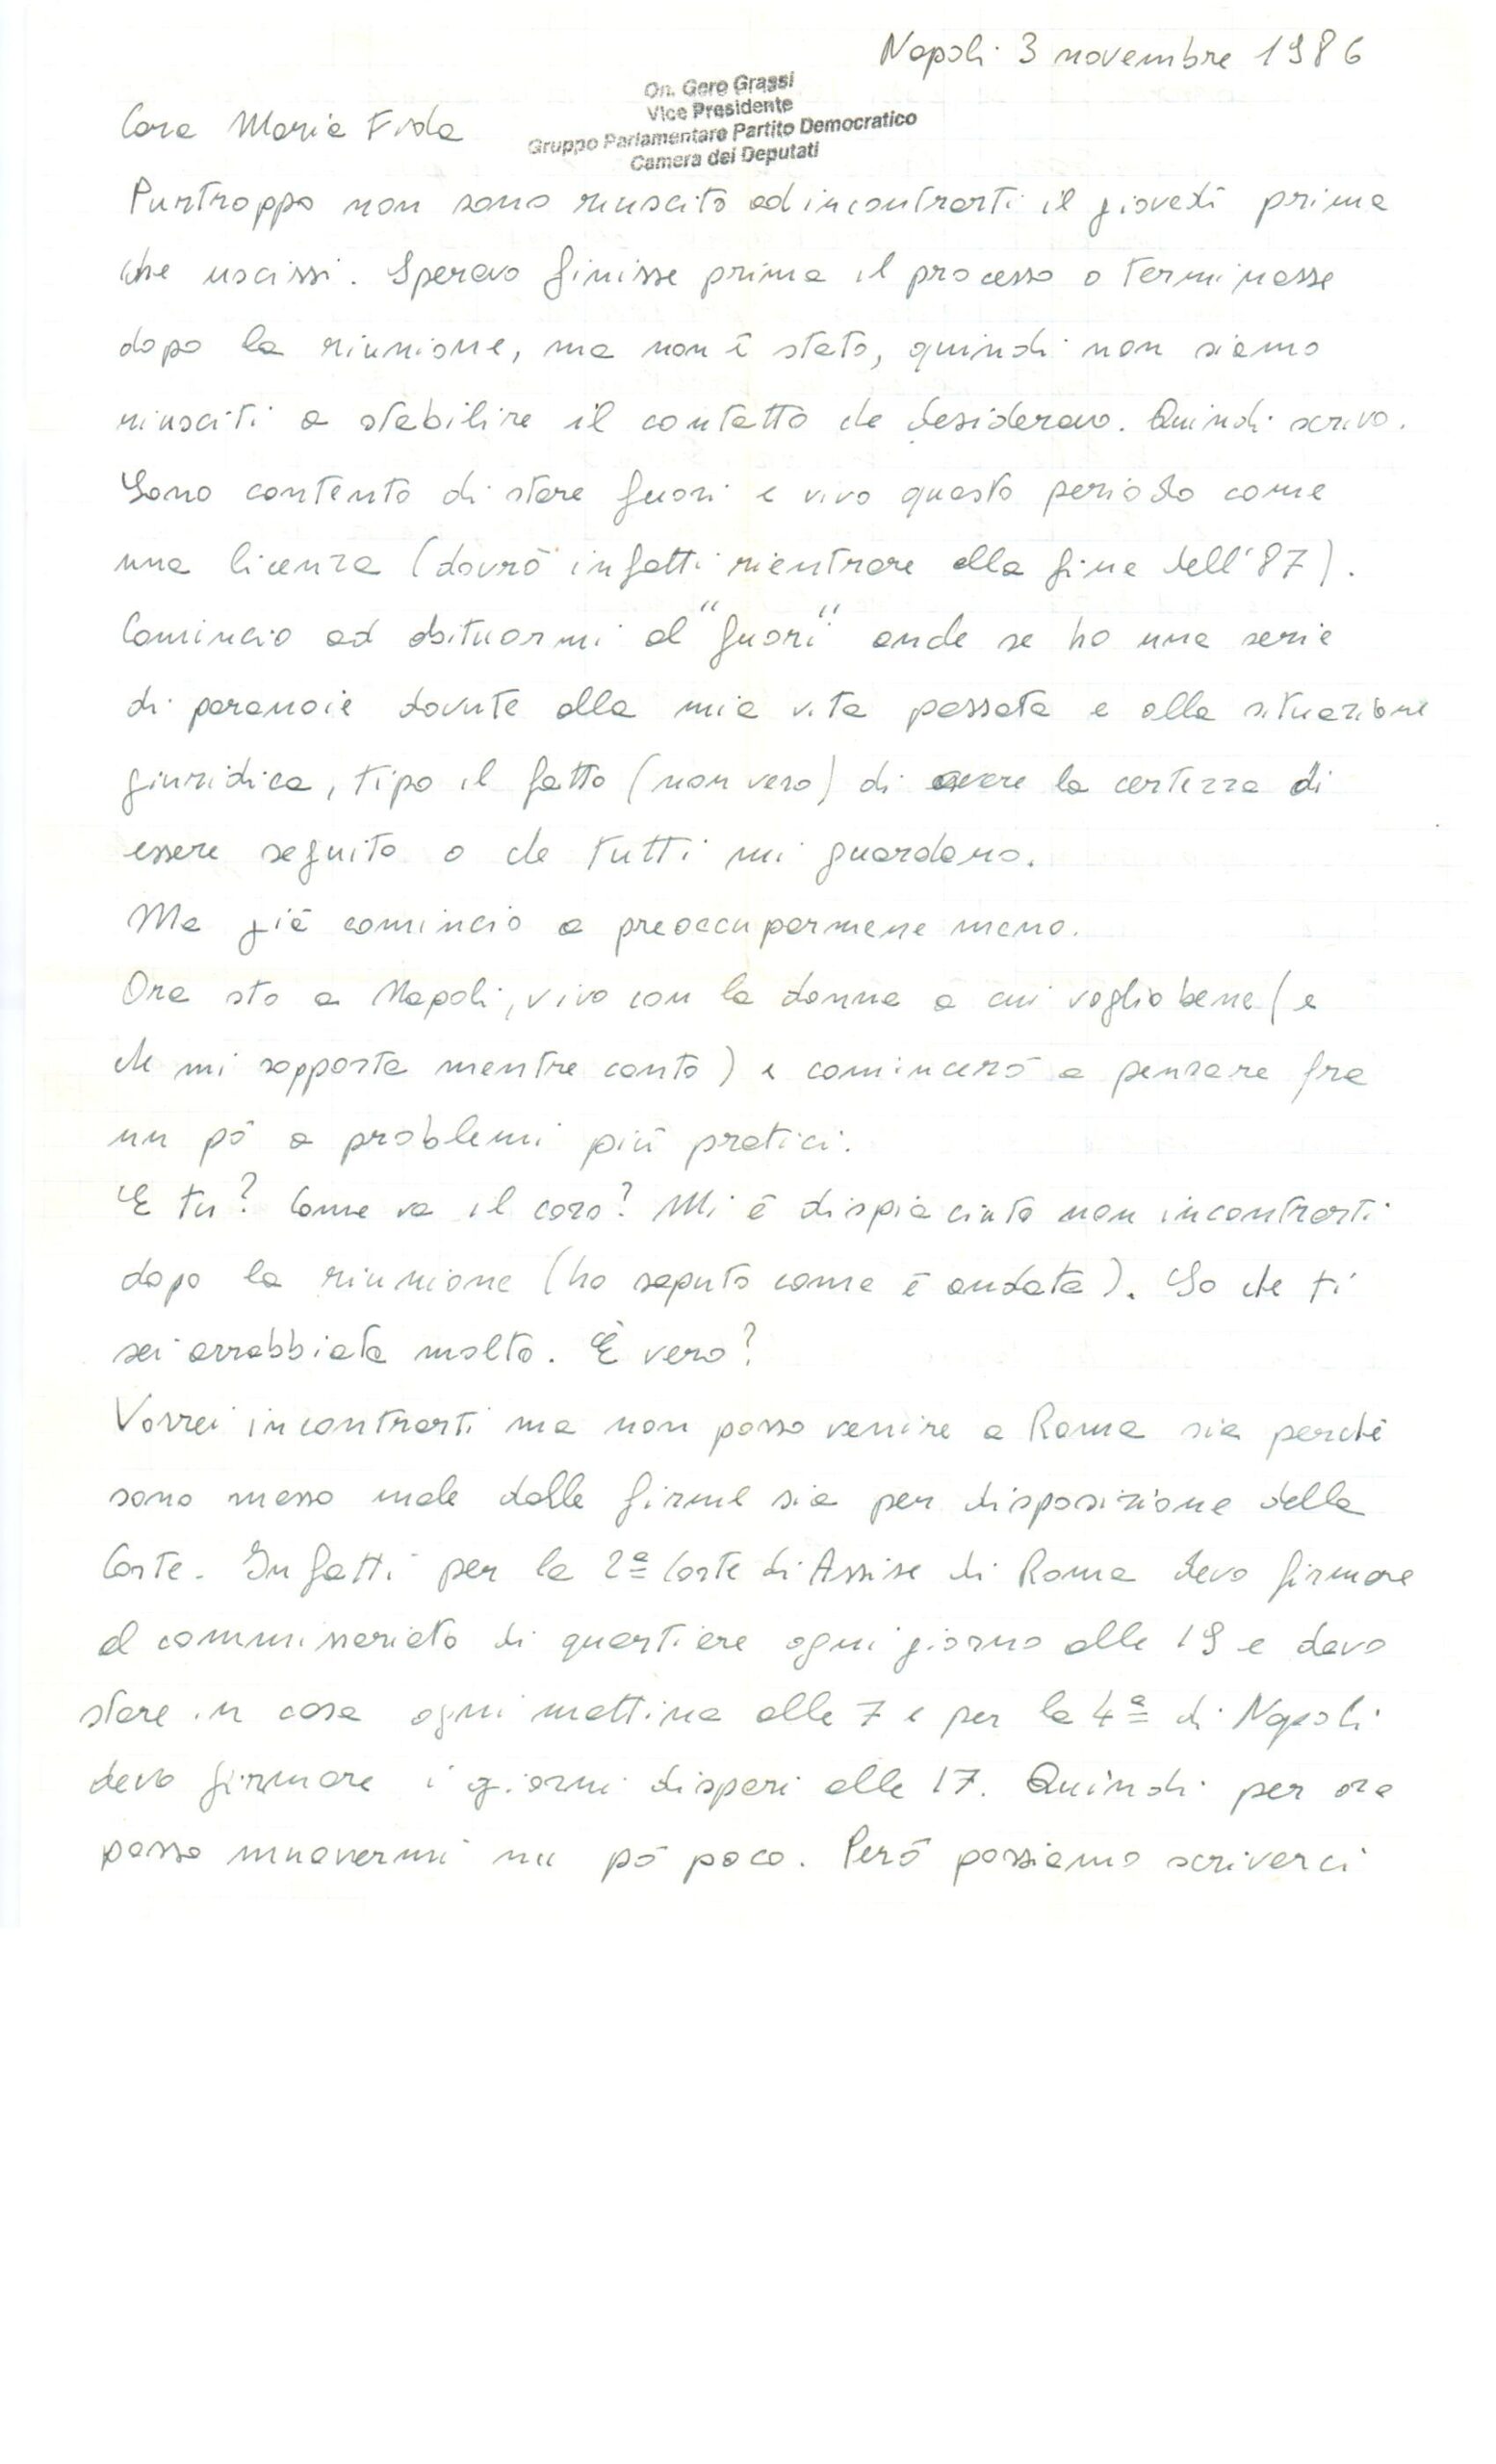 Napoli 3 novembre 1986
On. Gero Grassi
Vice Presidente
Gruppo Parlamentare Partito Democratico
Camera dei Deputati
Cara Maria Fida
Purtroppo non sono riuscito ad incontrarti il giovedì prima
che uscissi. Speravo finisse prima il processo o terminasse
dopo la riunione, ma non è stato, quindi non siamo
riusciti a stabilire il contatto che desideravo. Quindi scrivo.
Sono contento di stare fuori e vivo questo periodo come
una licenza (dovrò infatti rientrare alla fine dell'87).
Comincio ad abituarmi al "fuori" anche se ho una serie
di paranoie dovute alla mia vita passata e alla situazione
giuridica, tipo il fatto (non vero) di avere la certezza di
essere seguito o che tutti mi guardano.
Ma già comincio a preoccuparmene meno.
Ora sto a Napoli, vivo con la donna a cui voglio bene (e
che mi sopporta mentre canto) e comincerò a pensare fra
un pò a problemi più pratici.
E tu? Come va il coro? Mi è dispiaciuto non incontrarti
dopo la riunione (ho saputo come è andata). So che ti
sei arrabbiata molto. È vero?
Vorrei incontrarti ma non posso venire a Roma sia perché
sono messo male dalle firme sia per disposizione della
Corte. Infatti per la 2ª Corte di Assise di Roma devo firmare
al commissariato di quartiere ogni giorno alle 19 e devo
stare in casa ogni mattina alle 7 e per la 4ª di Napoli
devo firmare i giorni dispari alle 17. Quindi per ora
posso muovermi un pò poco. Però possiamo scriverci